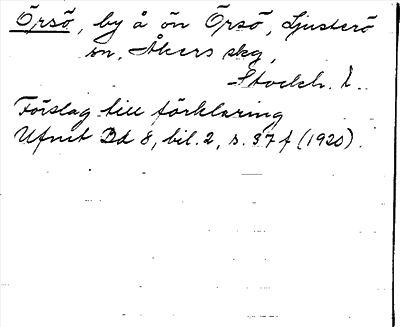 Örsö, by å ön Örsö, Ljusterö
sn, Åkers skg,
Stockh. l.
Förslag till förklaring
Ufnit Bd 8, bil. 2, s. 37 f (1920).